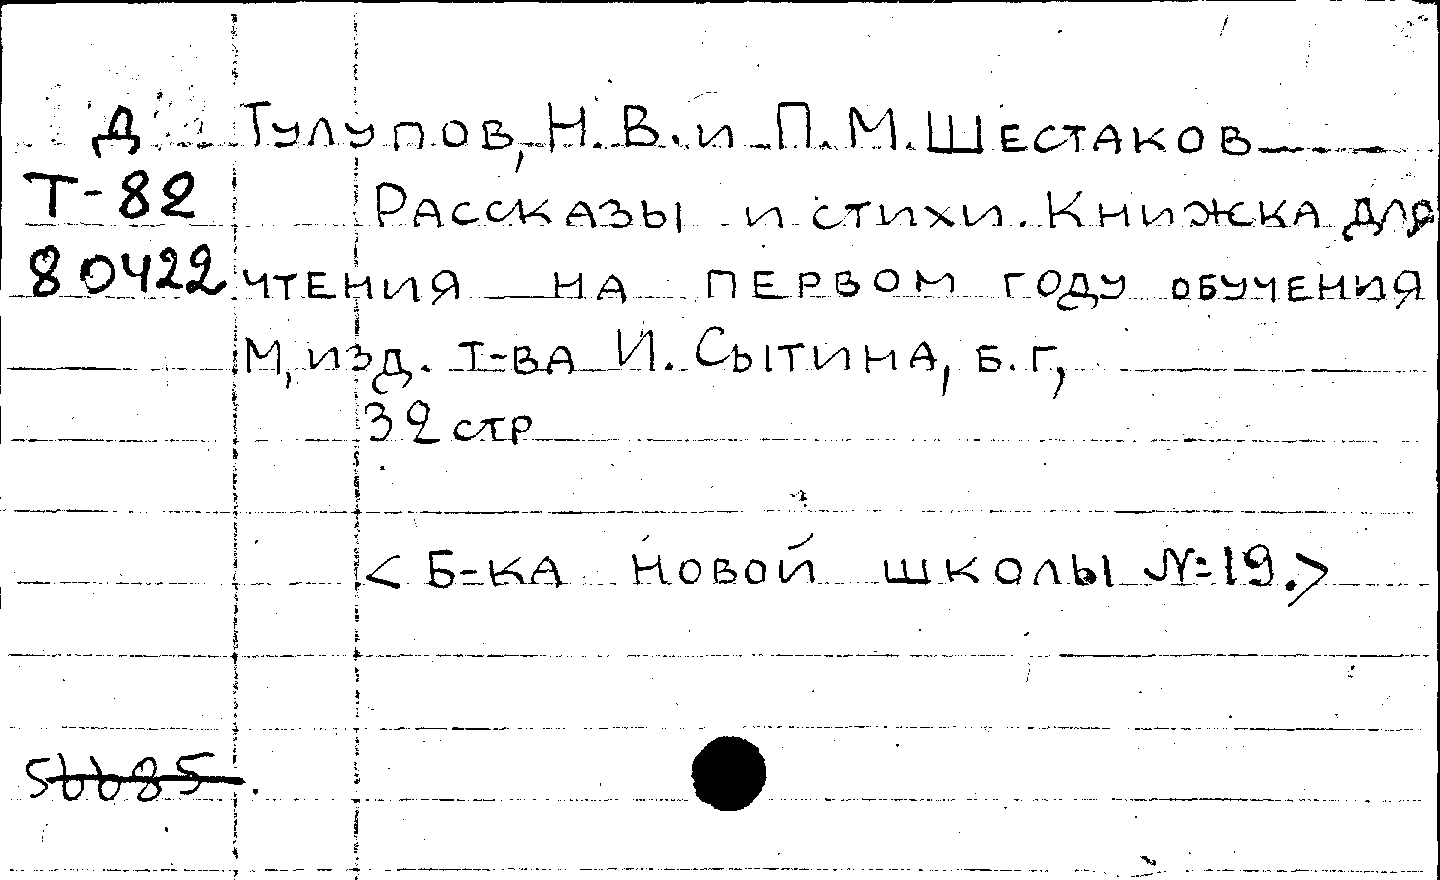 Д Тулупов, Н. В. и П. М. Шестаков
Т-82 Рассказы и стихи. Книжка для
80422 чтения на первом году обучения
М, изд. т-ва И. Сытина, Б. г,
32 стр
<Б-ка новой школы №19.>
56685.